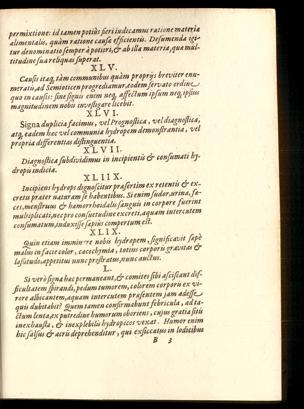 permixtione: id tamen potiùs fieri indicamus ratione materiæ
alimentalis, quàm ratione causæ efficientis. Desumenda igi-
tur denominatio semper à potiori, & ab illa materia, quæ mul-
titudine sua reliquas superat.
XLV.
Causis itaq; tàm communibus quàm proprijs breviter enu-
meratis, ad Semioticen progrediamur, eodem servato ordine
quo in causis: sine signis enim neq; affectum ipsum neq; ipsius
magnitudinem nobis investigare licebit.
XLVI.
Signa duplicia facimus, vel Prognostica, vel diagnostica,
atq; eadem hæc vel communia hydropem demonstrantia, vel
propria differentias distinguentia.
XLVII.
Diagnostica subdividimus in incipientis & consumati hy-
dropis indicia.
XLIIX.
Incipiens hydrops dignoscitur præsertim ex retentis & ex-
cretis præter naturam se habentibus. Si enim sudor, urina, fæ-
ces, menstruus & hæmorrhoidalis sanguis in corpore fuerint
multiplicati, nec pro consuetudine excreti, aquam intercutem
consumatum, induxisse sæpius compertum est.
XLIX.
Quin etiam imminere nobis hydropem, significavit sæpè
malus in facie color, cacochymia, totius corporis gravitas &
lassitudo, appetitus nunc prostratus, nunc auctus.
L.
Si verò signa hæc permaneant, & comites sibi asciscant dif-
ficultatem spirandi, pedum tumorem, colorem corporis ex vi-
rore albicantem, aquam intercutem præsentem jam adesse
quis dubitabit? Quem tamen confirmabunt febricula, ad ta-
ctum lenta, ex putredine humorum obortens, cujus gratia sitis
inexhausta, & inexplebilis hydropicos vexat. Humor enim
hic salsus & acris deprehenditur, qui exsiccatus in lodicibus
B 3